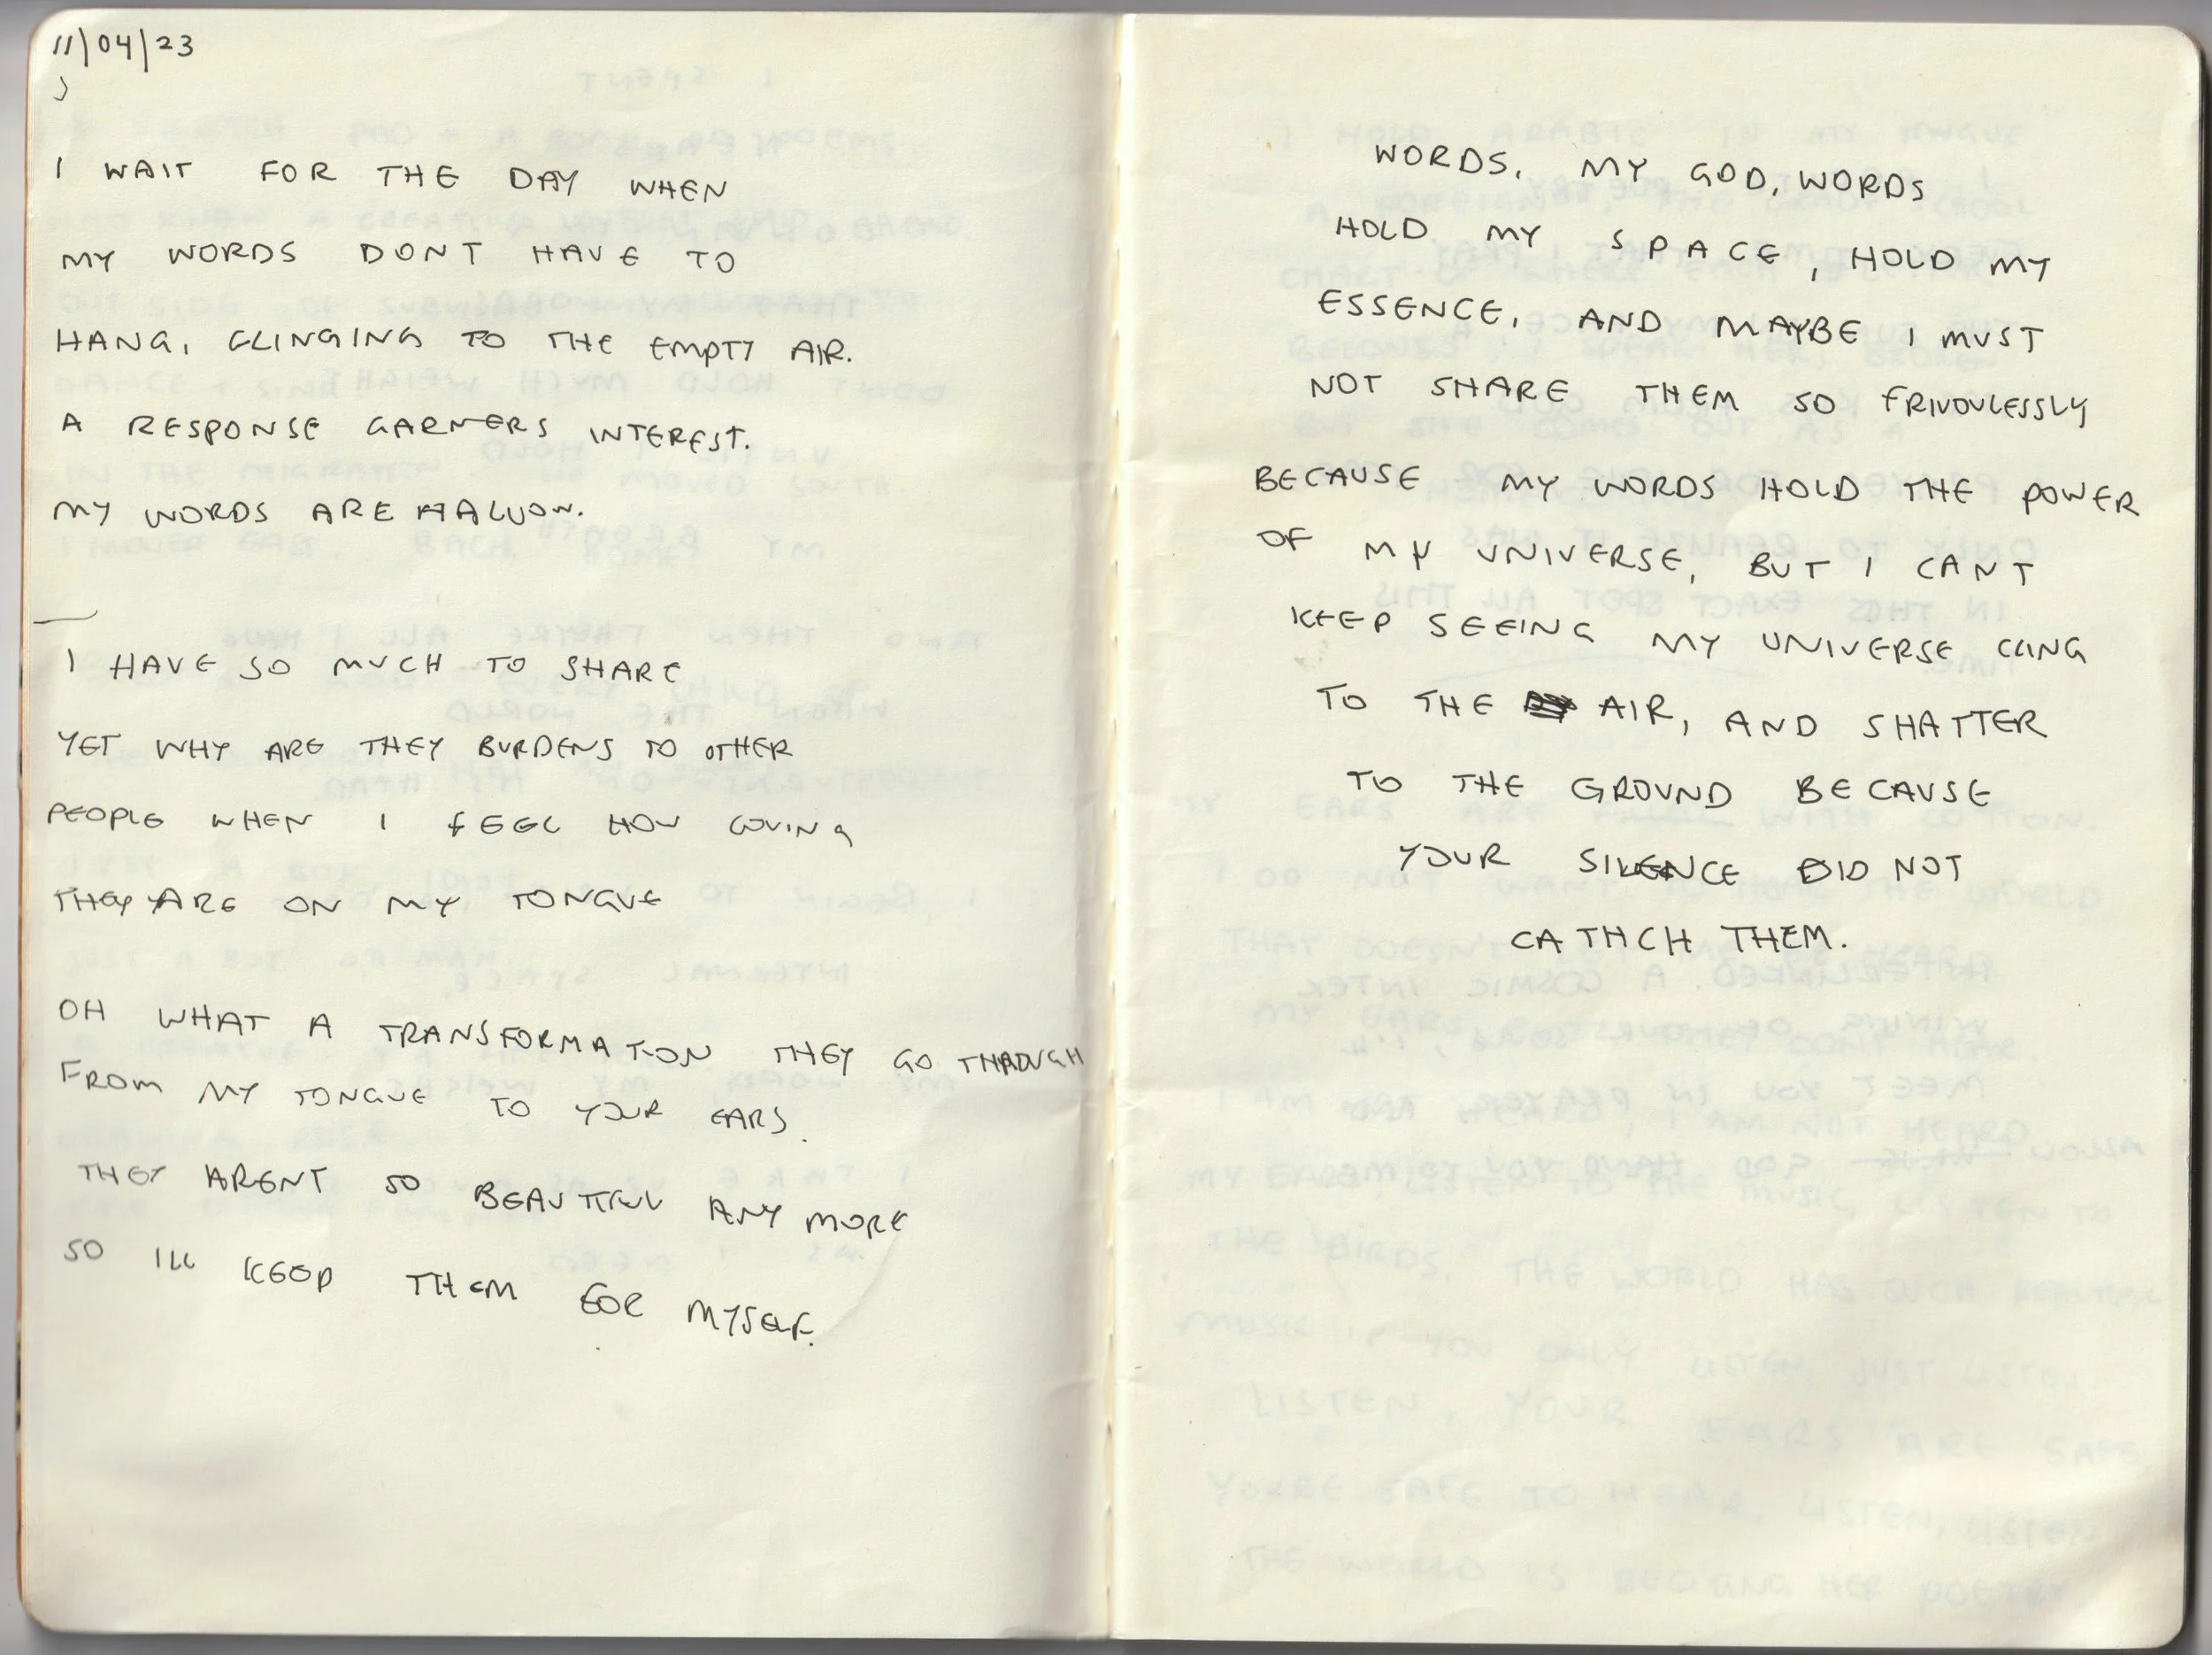 11/04/23
I WAIT FOR THE DAY WHEN
MY WORDS DONT HAVE TO
HANG, CLINGING TO THE EMPTY AIR.
A RESPONSE GARNERS INTEREST.
MY WORDS ARE
I HAVE SO MUCH TO SHARE
YET WHY ARE THEY BURDENS TO OTHER
PEOPLE WHEN I FEEL HOW LOVING
THEY ARE ON MY TONGUE
OH WHAT A TRANSFORMATION THEY GO THROUGH
FROM MY TONGUE TO YOUR EARS.
THEY ARENT SO BEAUTIFUL ANY MORE
SO ILL KEEP THEM FOR MYSELF.
WORDS, MY GOD, WORDS
HOLD MY SPACE, HOLD MY
ESSENCE, AND MAYBE I MUST
NOT SHARE THEM SO FRIVOULESSLY
BECAUSE MY WORDS HOLD THE POWER
OF MY UNIVERSE, BUT I CANT
KEEP SEEING MY UNIVERSE CLING
TO THE AIR, AND SHATTER
TO THE GROUND BECAUSE
YOUR SILENCE DID NOT
CATHCH THEM.